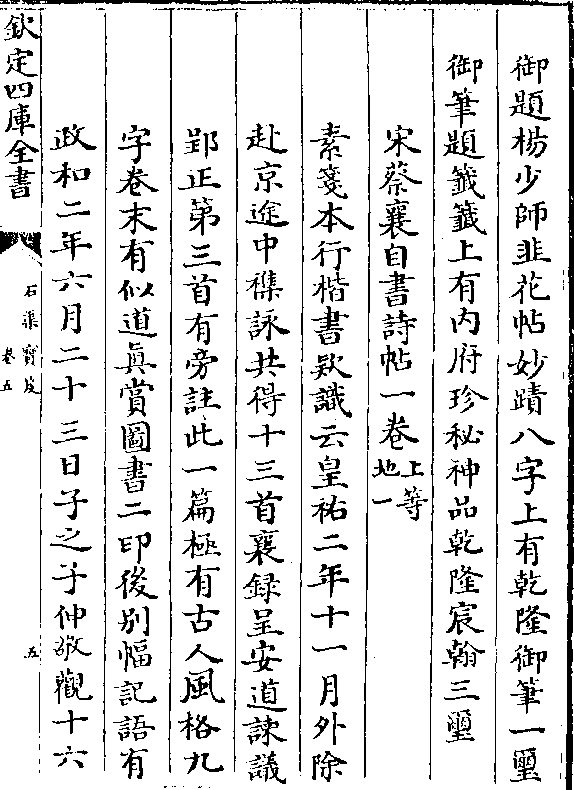 御題楊少師韭花帖妙蹟八字上有乾隆御筆一璽
御筆題籤籤上有內府珍秘神品乾隆宸翰三璽
宋蔡襄自書詩帖一卷上等地一
素箋本行楷書欵識云皇祐二年十一月外除
赴京途中襍詠共得十三首襄録呈安道諌議
郢正第三首有旁註此一篇極有古人風格九
字卷末有似道眞賞圖書二印後别幅記語有
政和二年六月二十三日子之子仲敬觀十六
欽定四庫全書
石渠寶笈
卷五
五